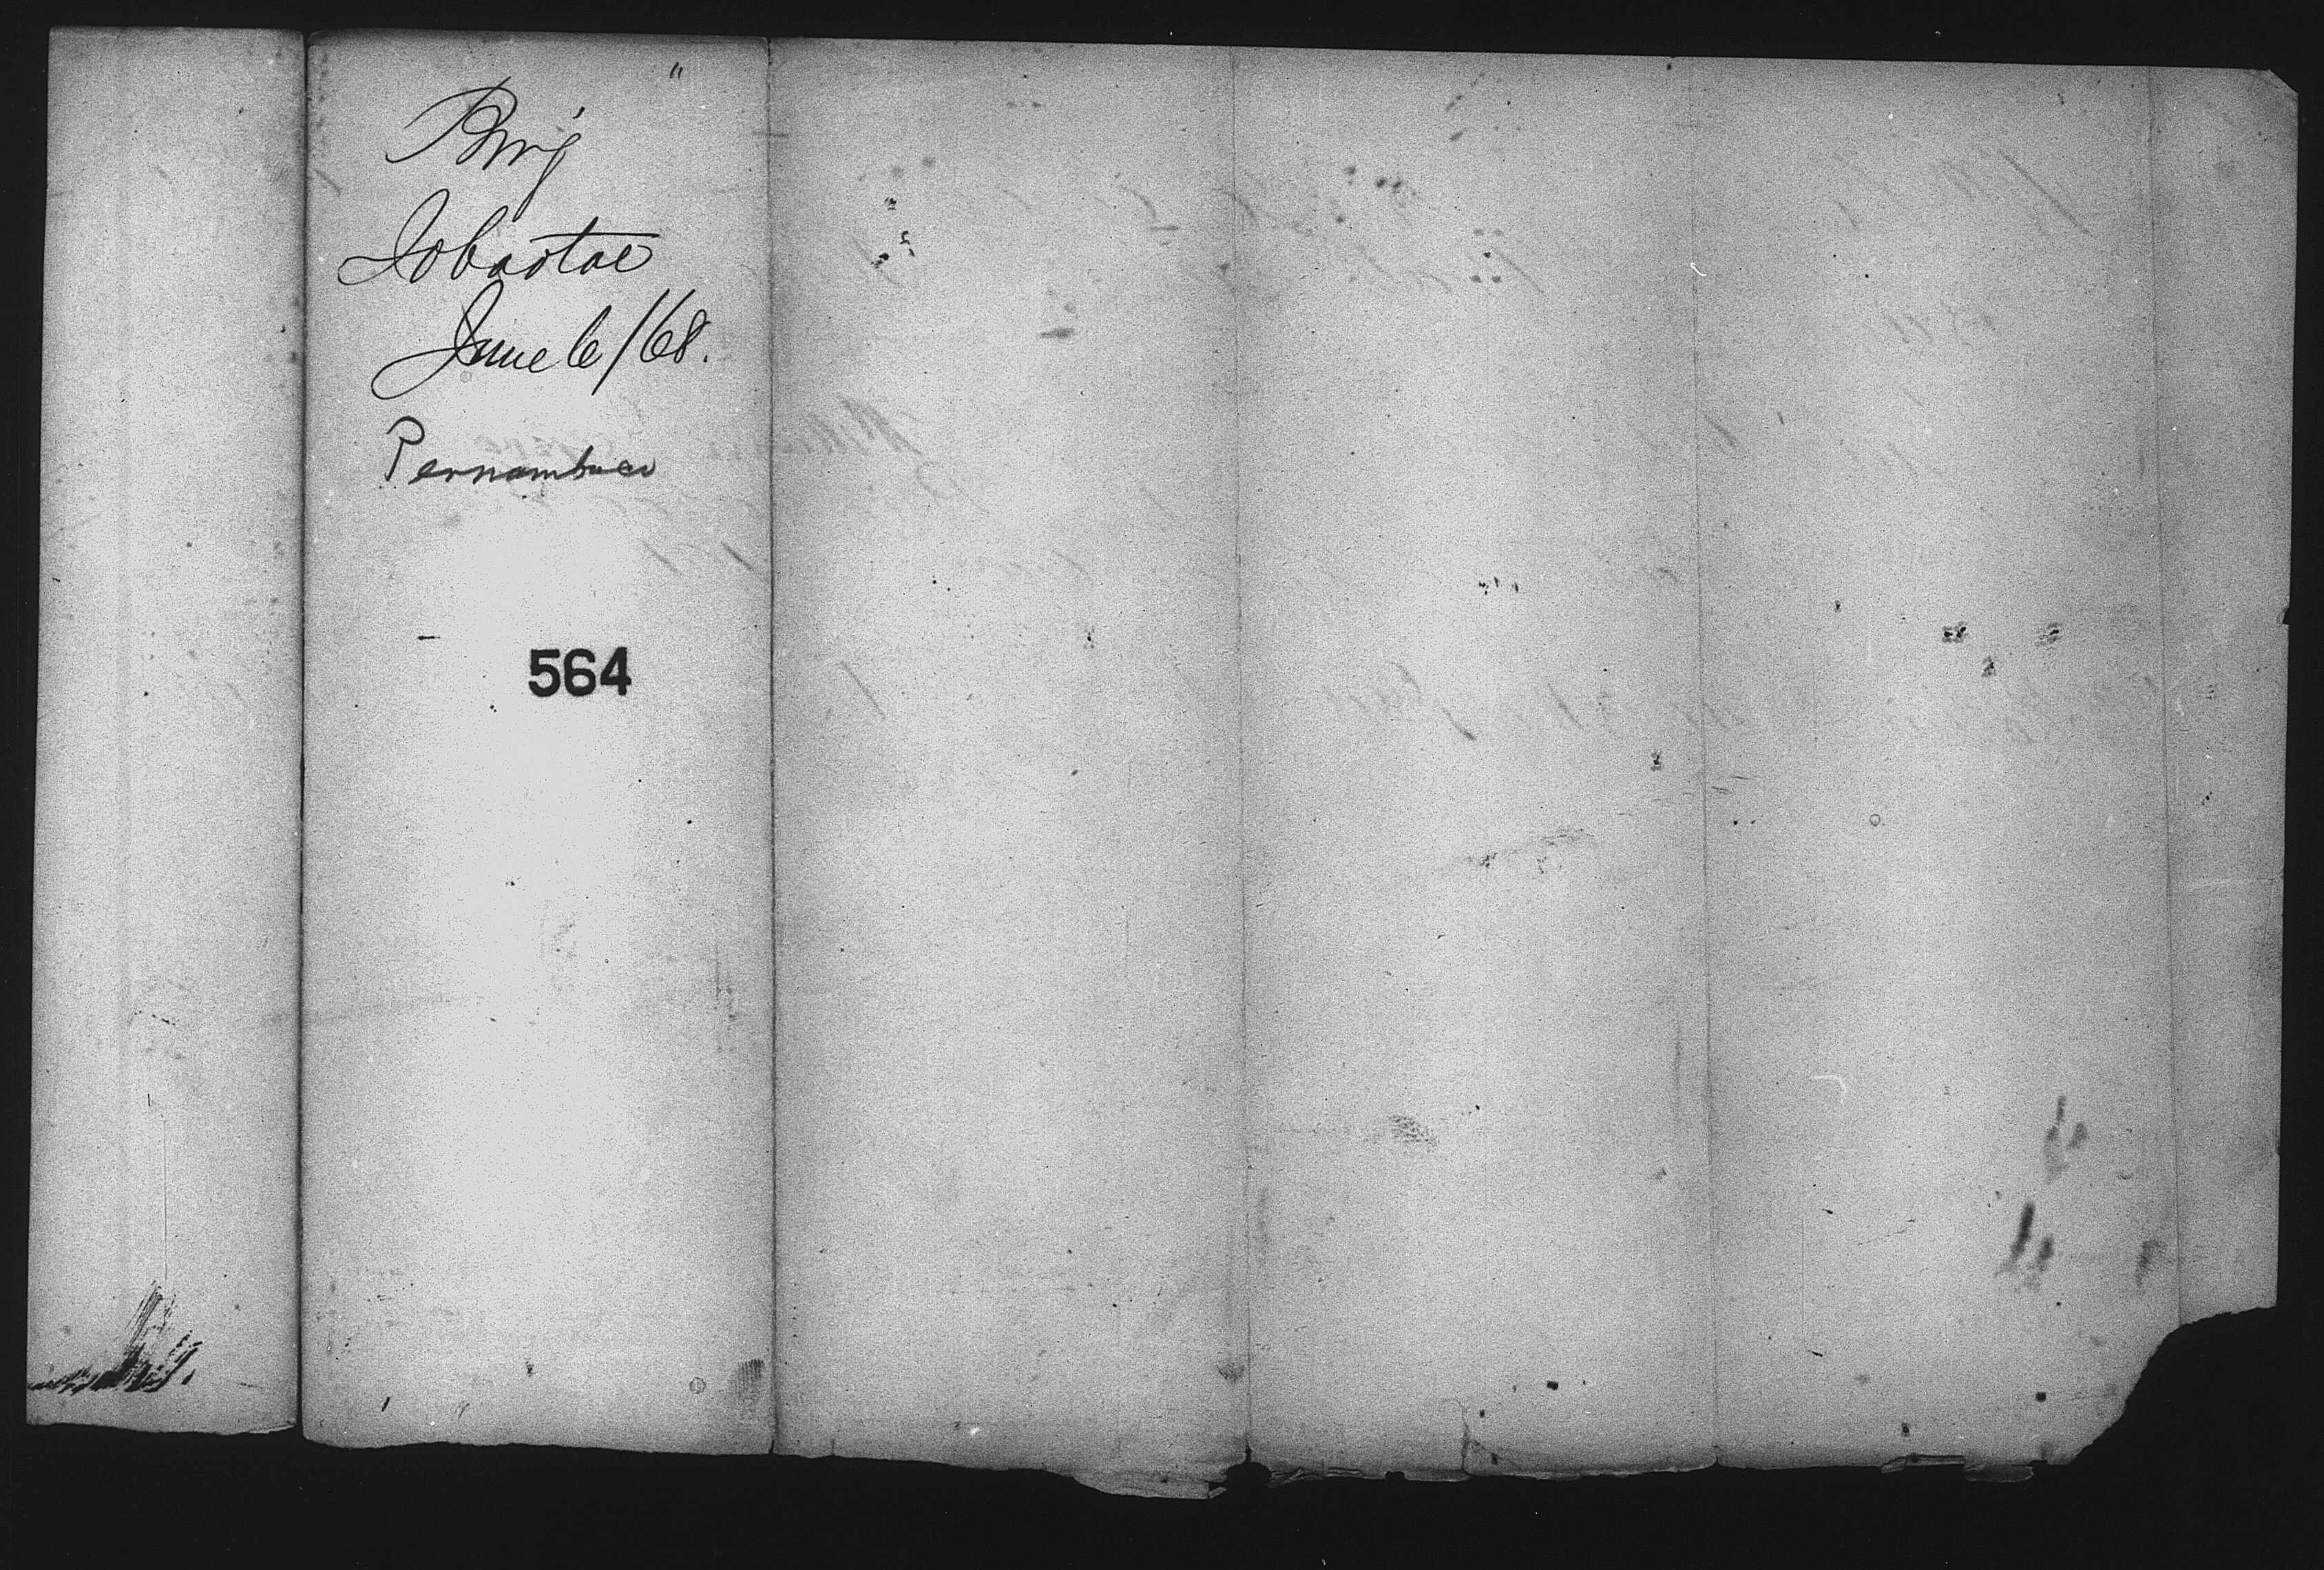 Brig
Iobaotae
June 6/68.
Pernambuco
564